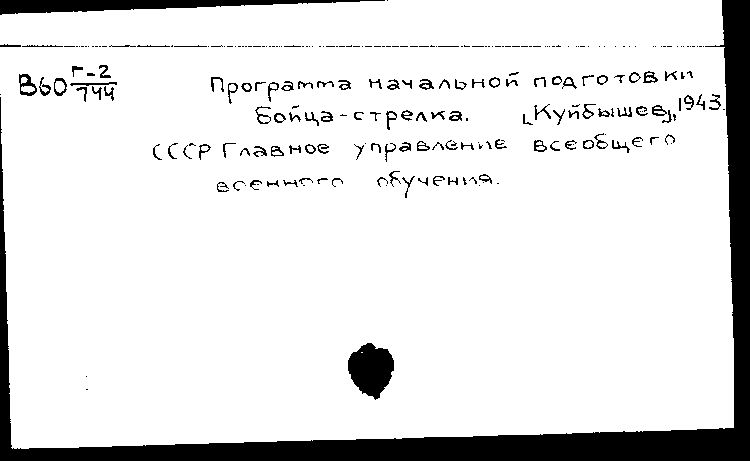 В60 Г-2/744 Программа начальной подготовки
бойца-стрелка. [Куйбышев], 1943.
СССР Главное управление всеобщего
военного обучения.